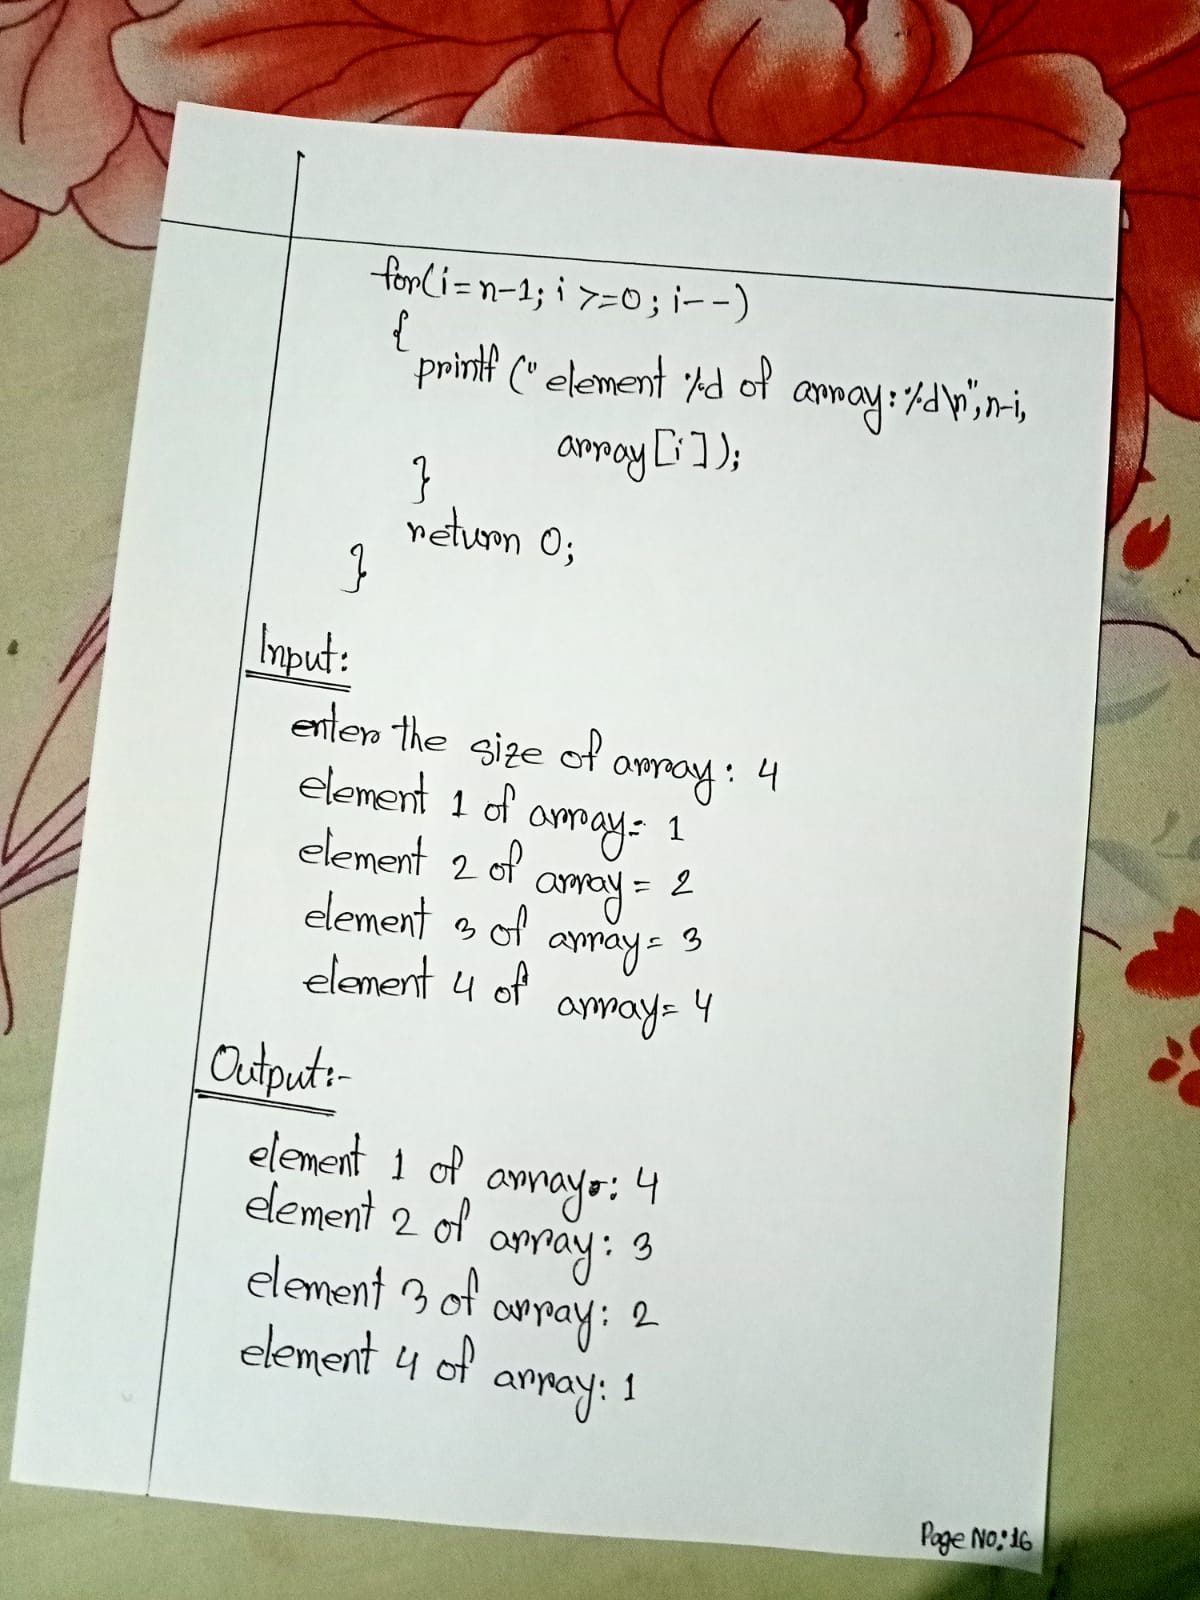 for(i=n-1; i >=0; i--)
{
printf ("element %d of array:%d\n",n-i,
array[i]);
}
return 0;
}
Input:
enter the size of array: 4
element 1 of array= 1
element 2 of array = 2
element 3 of array= 3
element 4 of array= 4
Output:-
element 1 of array: 4
element 2 of array: 3
element 3 of array: 2
element 4 of array: 1
Page No:16